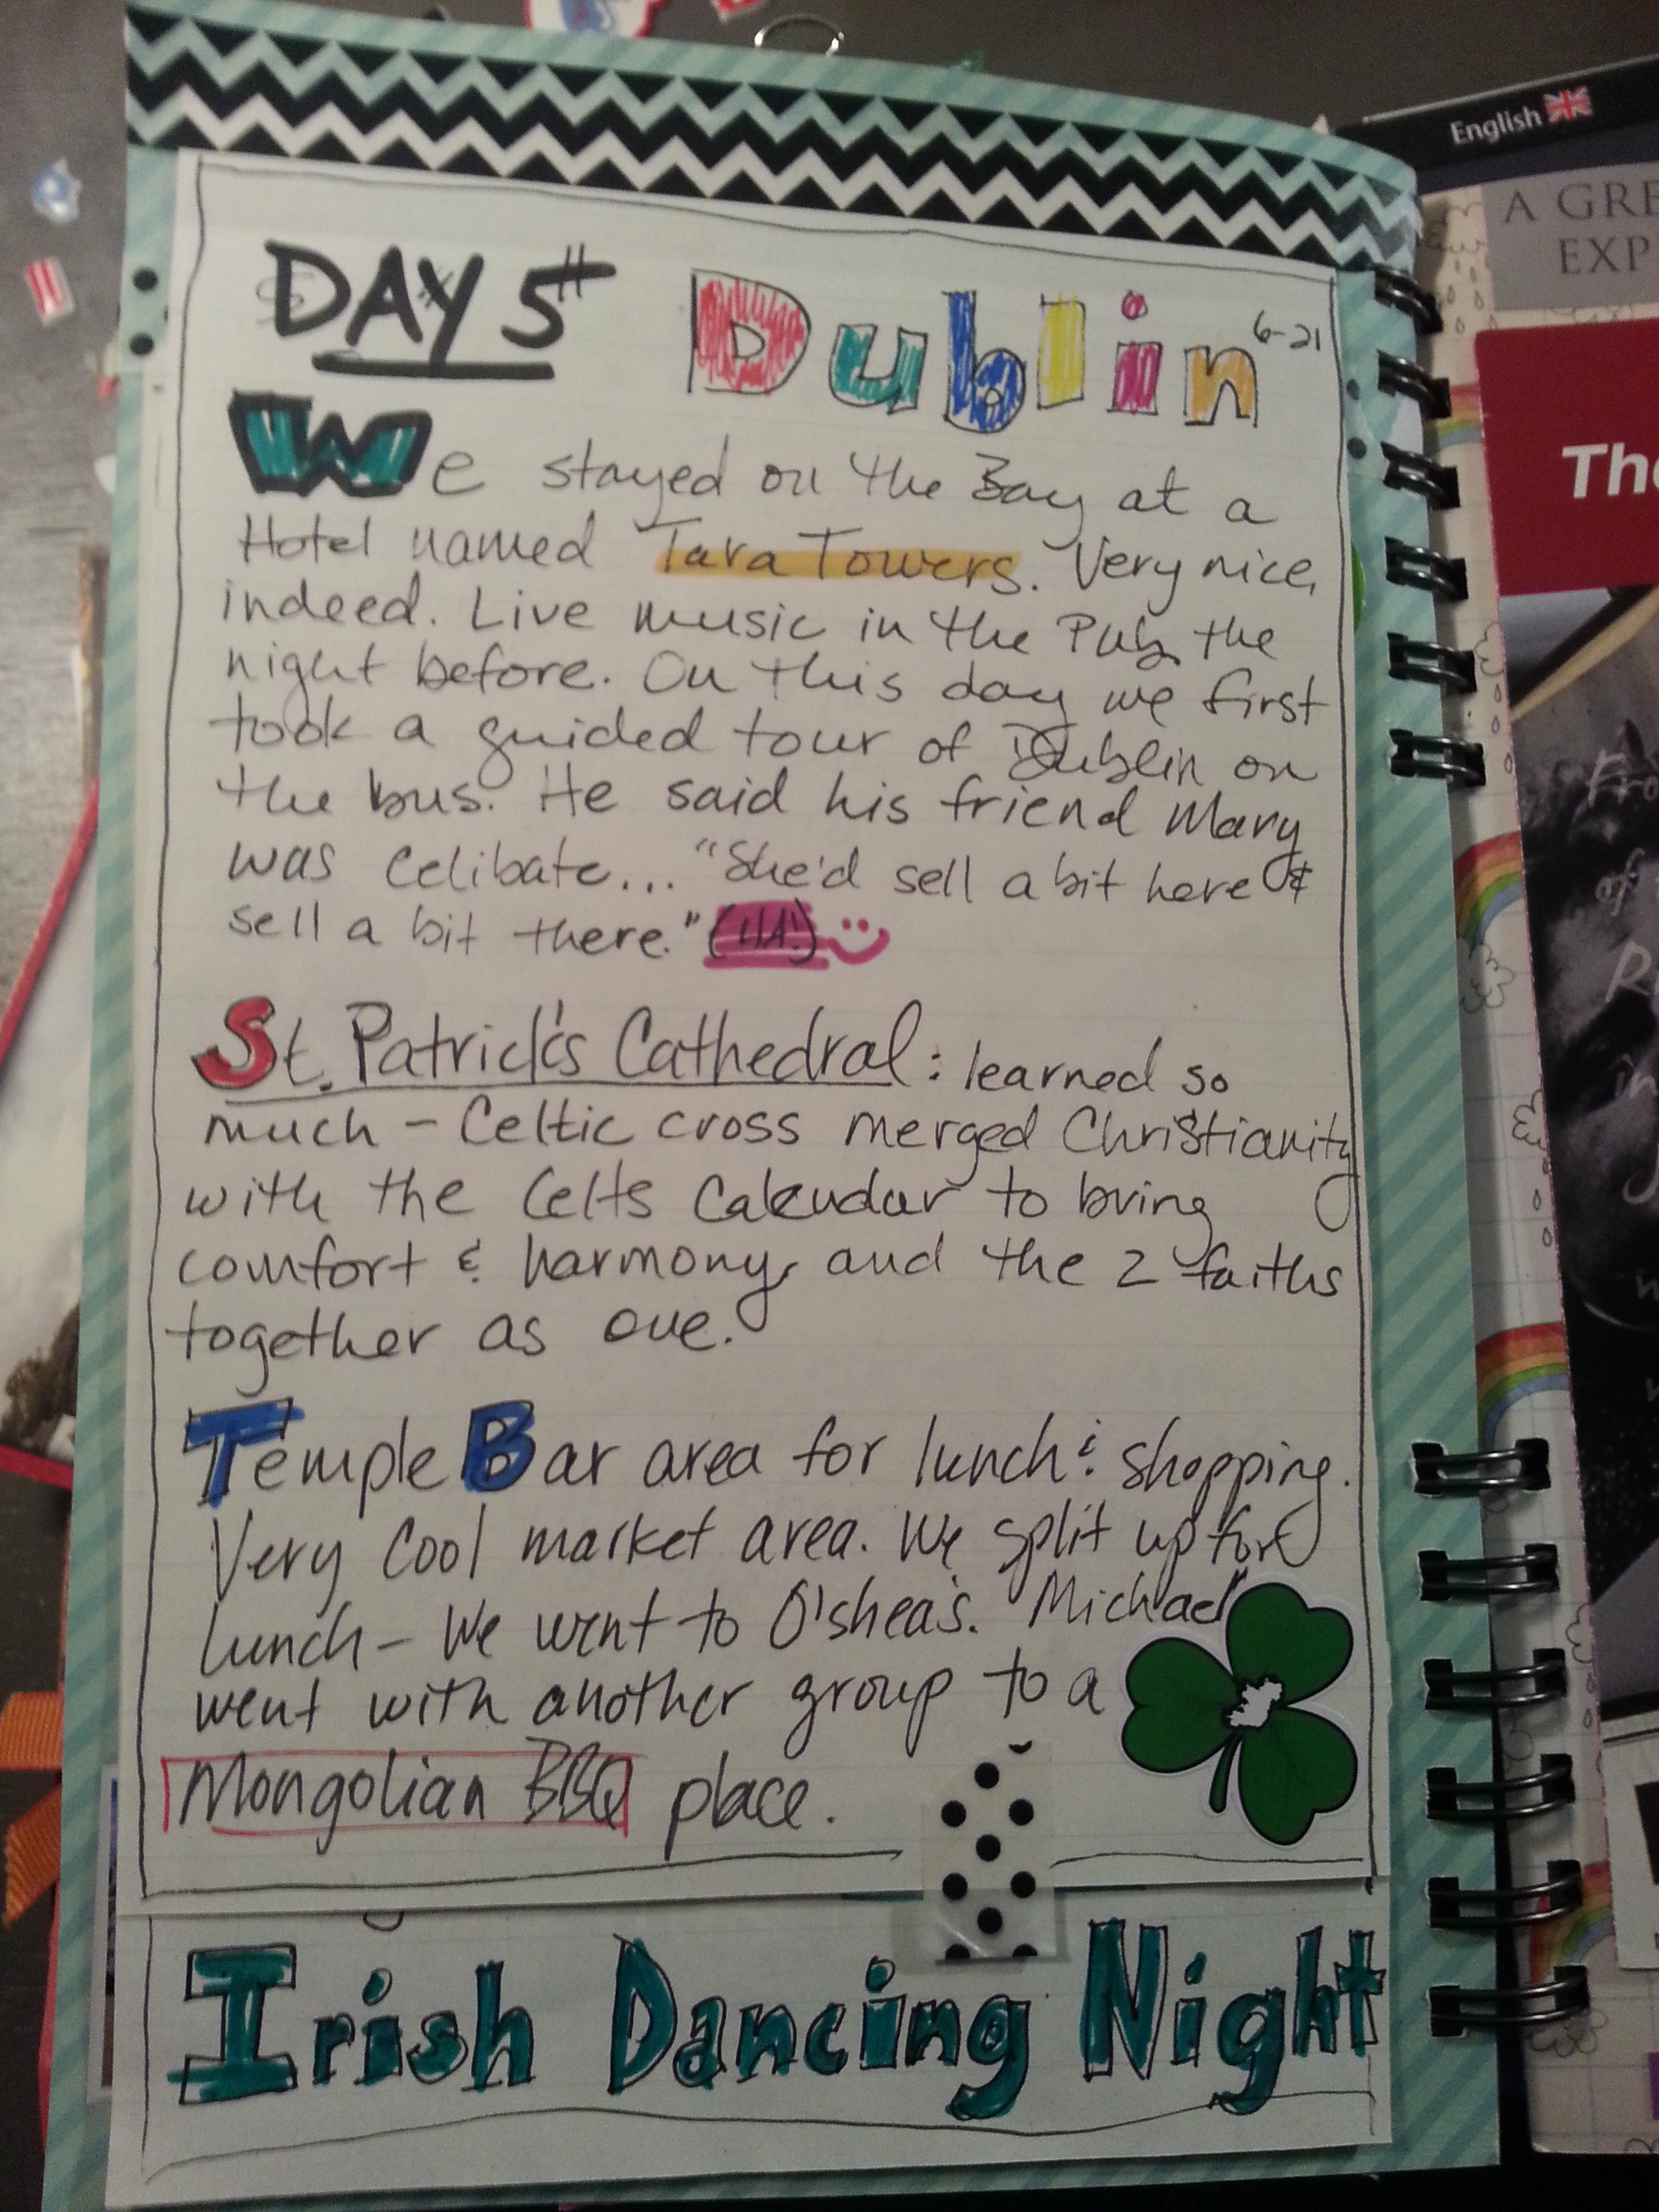 DAY 5 Dublin 6-21
We stayed on the Bay at a
Hotel named Tara Towers. Very nice,
indeed. Live music in the Pub the
night before. On this day we first
took a guided tour of Dublin on
the bus. He said his friend Mary
was celibate... "She'd sell a bit here &
sell a bit there." (HA!)
St. Patrick's Cathedral: learned so
much - Celtic cross merged Christianity
with the Celts Calendar to bring
comfort & harmony, and the 2 faiths
together as one.
Temple Bar area for lunch & shopping.
Very Cool market area. We split up for
lunch - We went to O'shea's. Michael
went with another group to a
Mongolian BBQ place.
Irish Dancing Night
English
A GRE
EXP
The
Fro
of
R
in